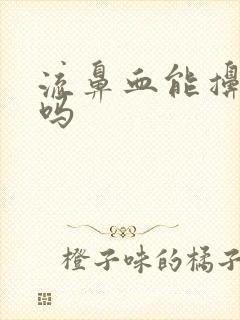 流鼻血能擤
吗
橙子味的橘子